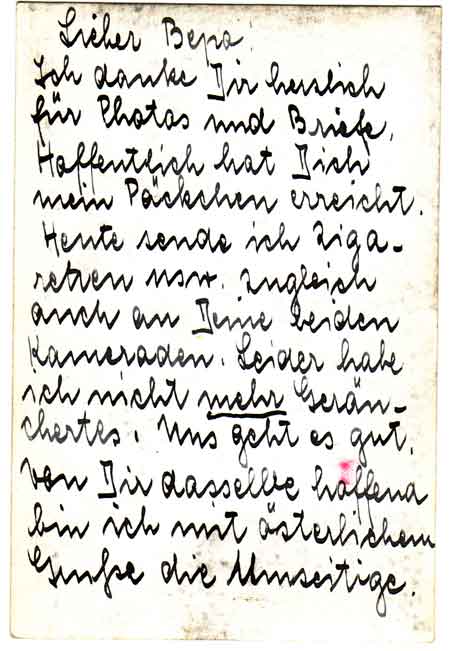 Lieber Bepo!
Ich danke Dir herzlich
für Photos und Briefe.
Hoffentlich hat Dich
mein Päckchen erreicht.
Heute sende ich Ziga-
retten usw. zugleich
auch an Deine beiden
Kameraden. Leider habe
ich nicht mehr Geräu-
chertes. Uns geht es gut,
von Dir dasselbe hoffend
bin ich mit österlichem
Gruße die Umseitige.